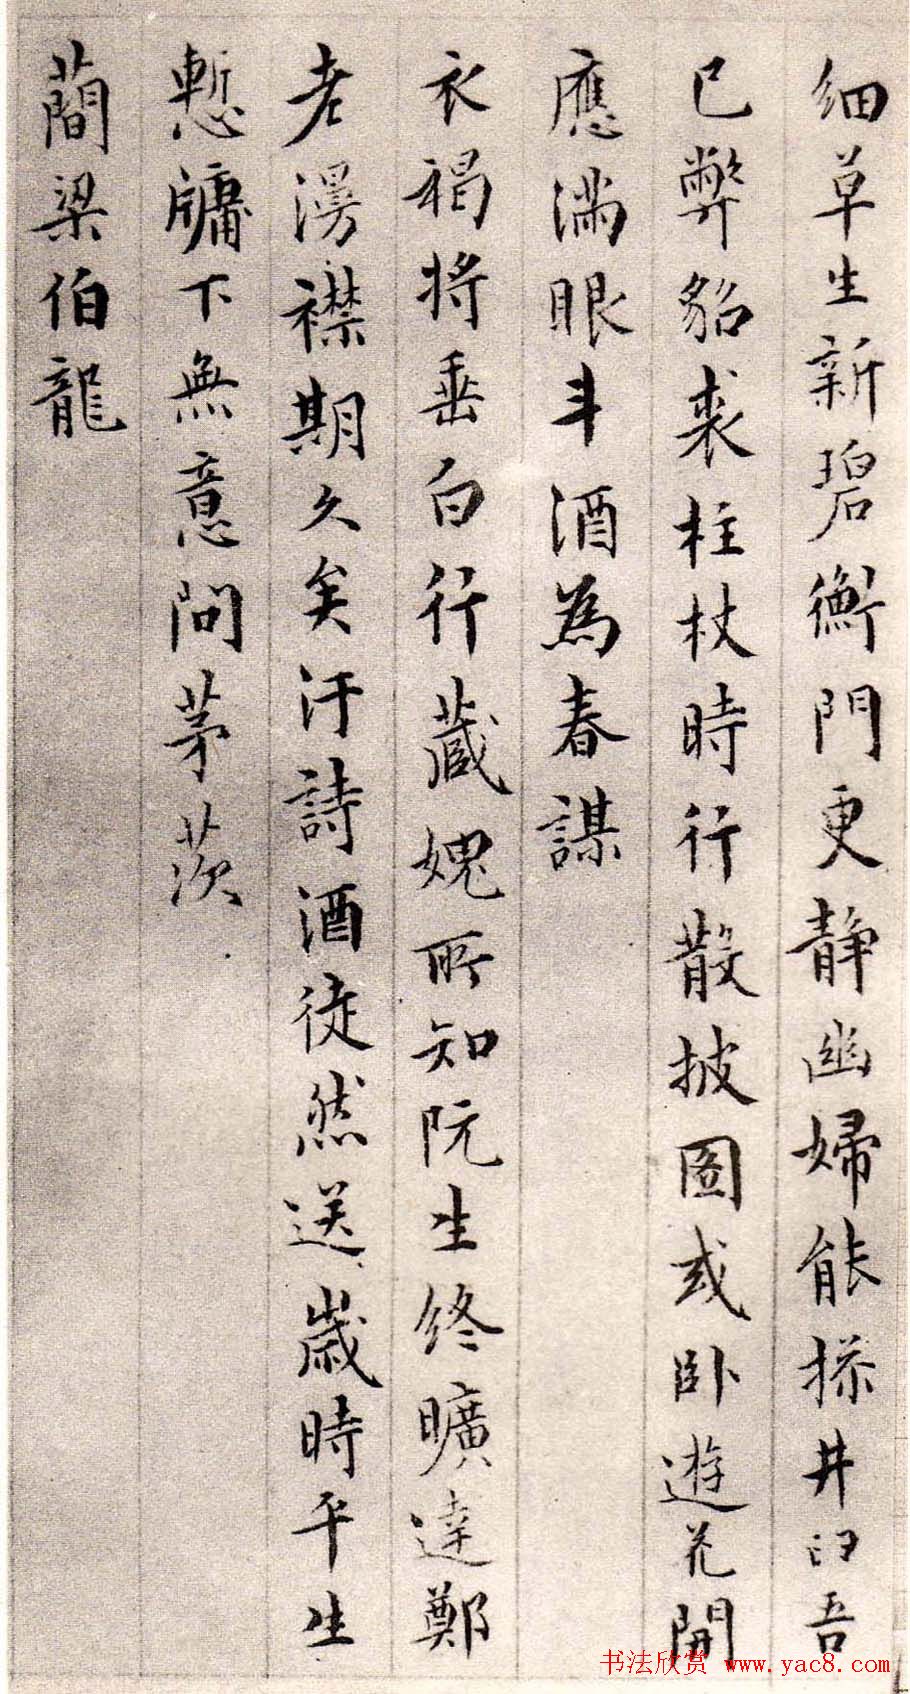 細草生新碧衡門更靜幽婦能操井臼吾
已弊貂裘柱杖時行散披圖或臥遊花開
應滿眼斗酒為春謀
衣褐將垂白行藏媿所知阮生終曠達鄭
老漫襟期久矣汙詩酒徒然送歲時平生
慙牖下無意問茅茨
蕳梁伯龍
书法欣赏 www.yac8.com